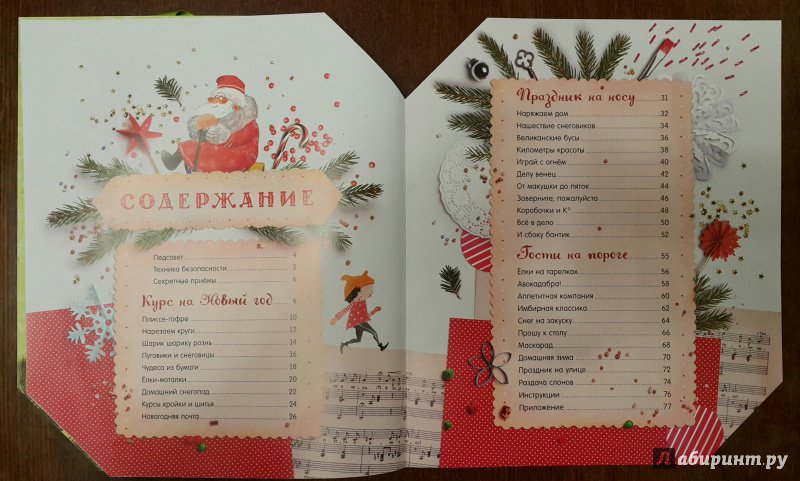 СОДЕРЖАНИЕ
Педсовет 4
Техника безопасности 5
Секретные приёмы 6
Курс на Новый год 9
Плиссе-гофре 10
Нарезаем круги 12
Шарик шарику рознь 14
Пуговики и снеговицы 16
Чудеса из бумаги 18
Ёлки-моталки 20
Домашний снегопад 22
Курсы кройки и шитья 24
Новогодняя почта 26
Праздник на носу 31
Наряжаем дом 32
Нашествие снеговиков 34
Великанские бусы 36
Километры красоты 38
Играй с огнём 40
Делу венец 42
От макушки до пяток 44
Заверните, пожалуйста 46
Коробочки и К° 48
Всё в дело 50
И сбоку бантик 52
Гости на пороге 55
Ёлки на тарелках 56
Авокадобра! 58
Аппетитная компания 60
Имбирная классика 62
Снег на закуску 64
Прошу к столу 66
Маскарад 68
Домашняя зима 70
Праздник на улице 72
Раздача слонов 74
Инструкции 76
Приложение 77
Лабиринт.ру